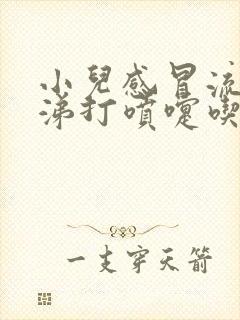 小兒感冒流
涕打噴嚏喫
一支穿天箭